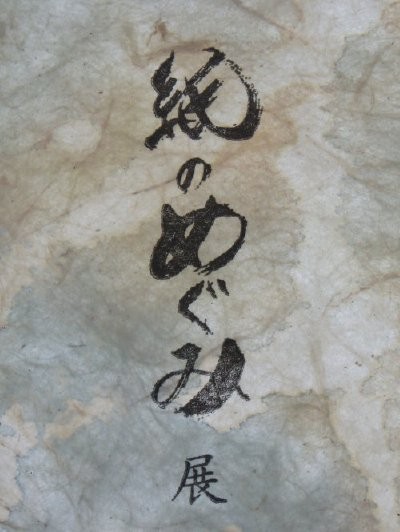 紙のめぐみ展